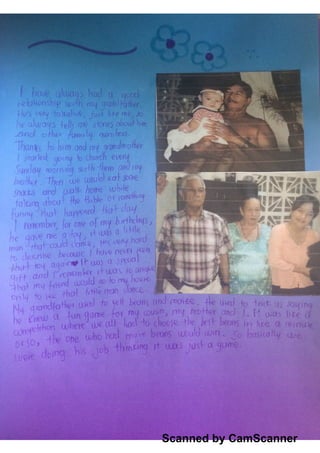 I have always had a good
relationship with my grandfather.
He's very talkative, just like me, so
he always tells me stories about him
and other family members.
Thanks to him and my grandmother
I started going to church every
Sunday morning with them and my
mother. Then we would eat some
and walk home while
talking about the Bible or something
funny that happened that day.
I remember, for one of my birthdays,
he gave me a toy, it was a little
man that could dance, its very hard
to describe because I have never seen
about toy again. It was a special
gift and I remember it was so unique
that my friend would go to my house
only to see that little man dance.
My grandfather used to sell beans and maize. He used to trick us saying
he knew a fun game for my cousin, my mother and I. It was like a
competition where we all had to choose the best beans in like a minute
or so, the one who had more beans would win. So basically we
were doing his job thinking it was just a game.
Scanned by CamScanner